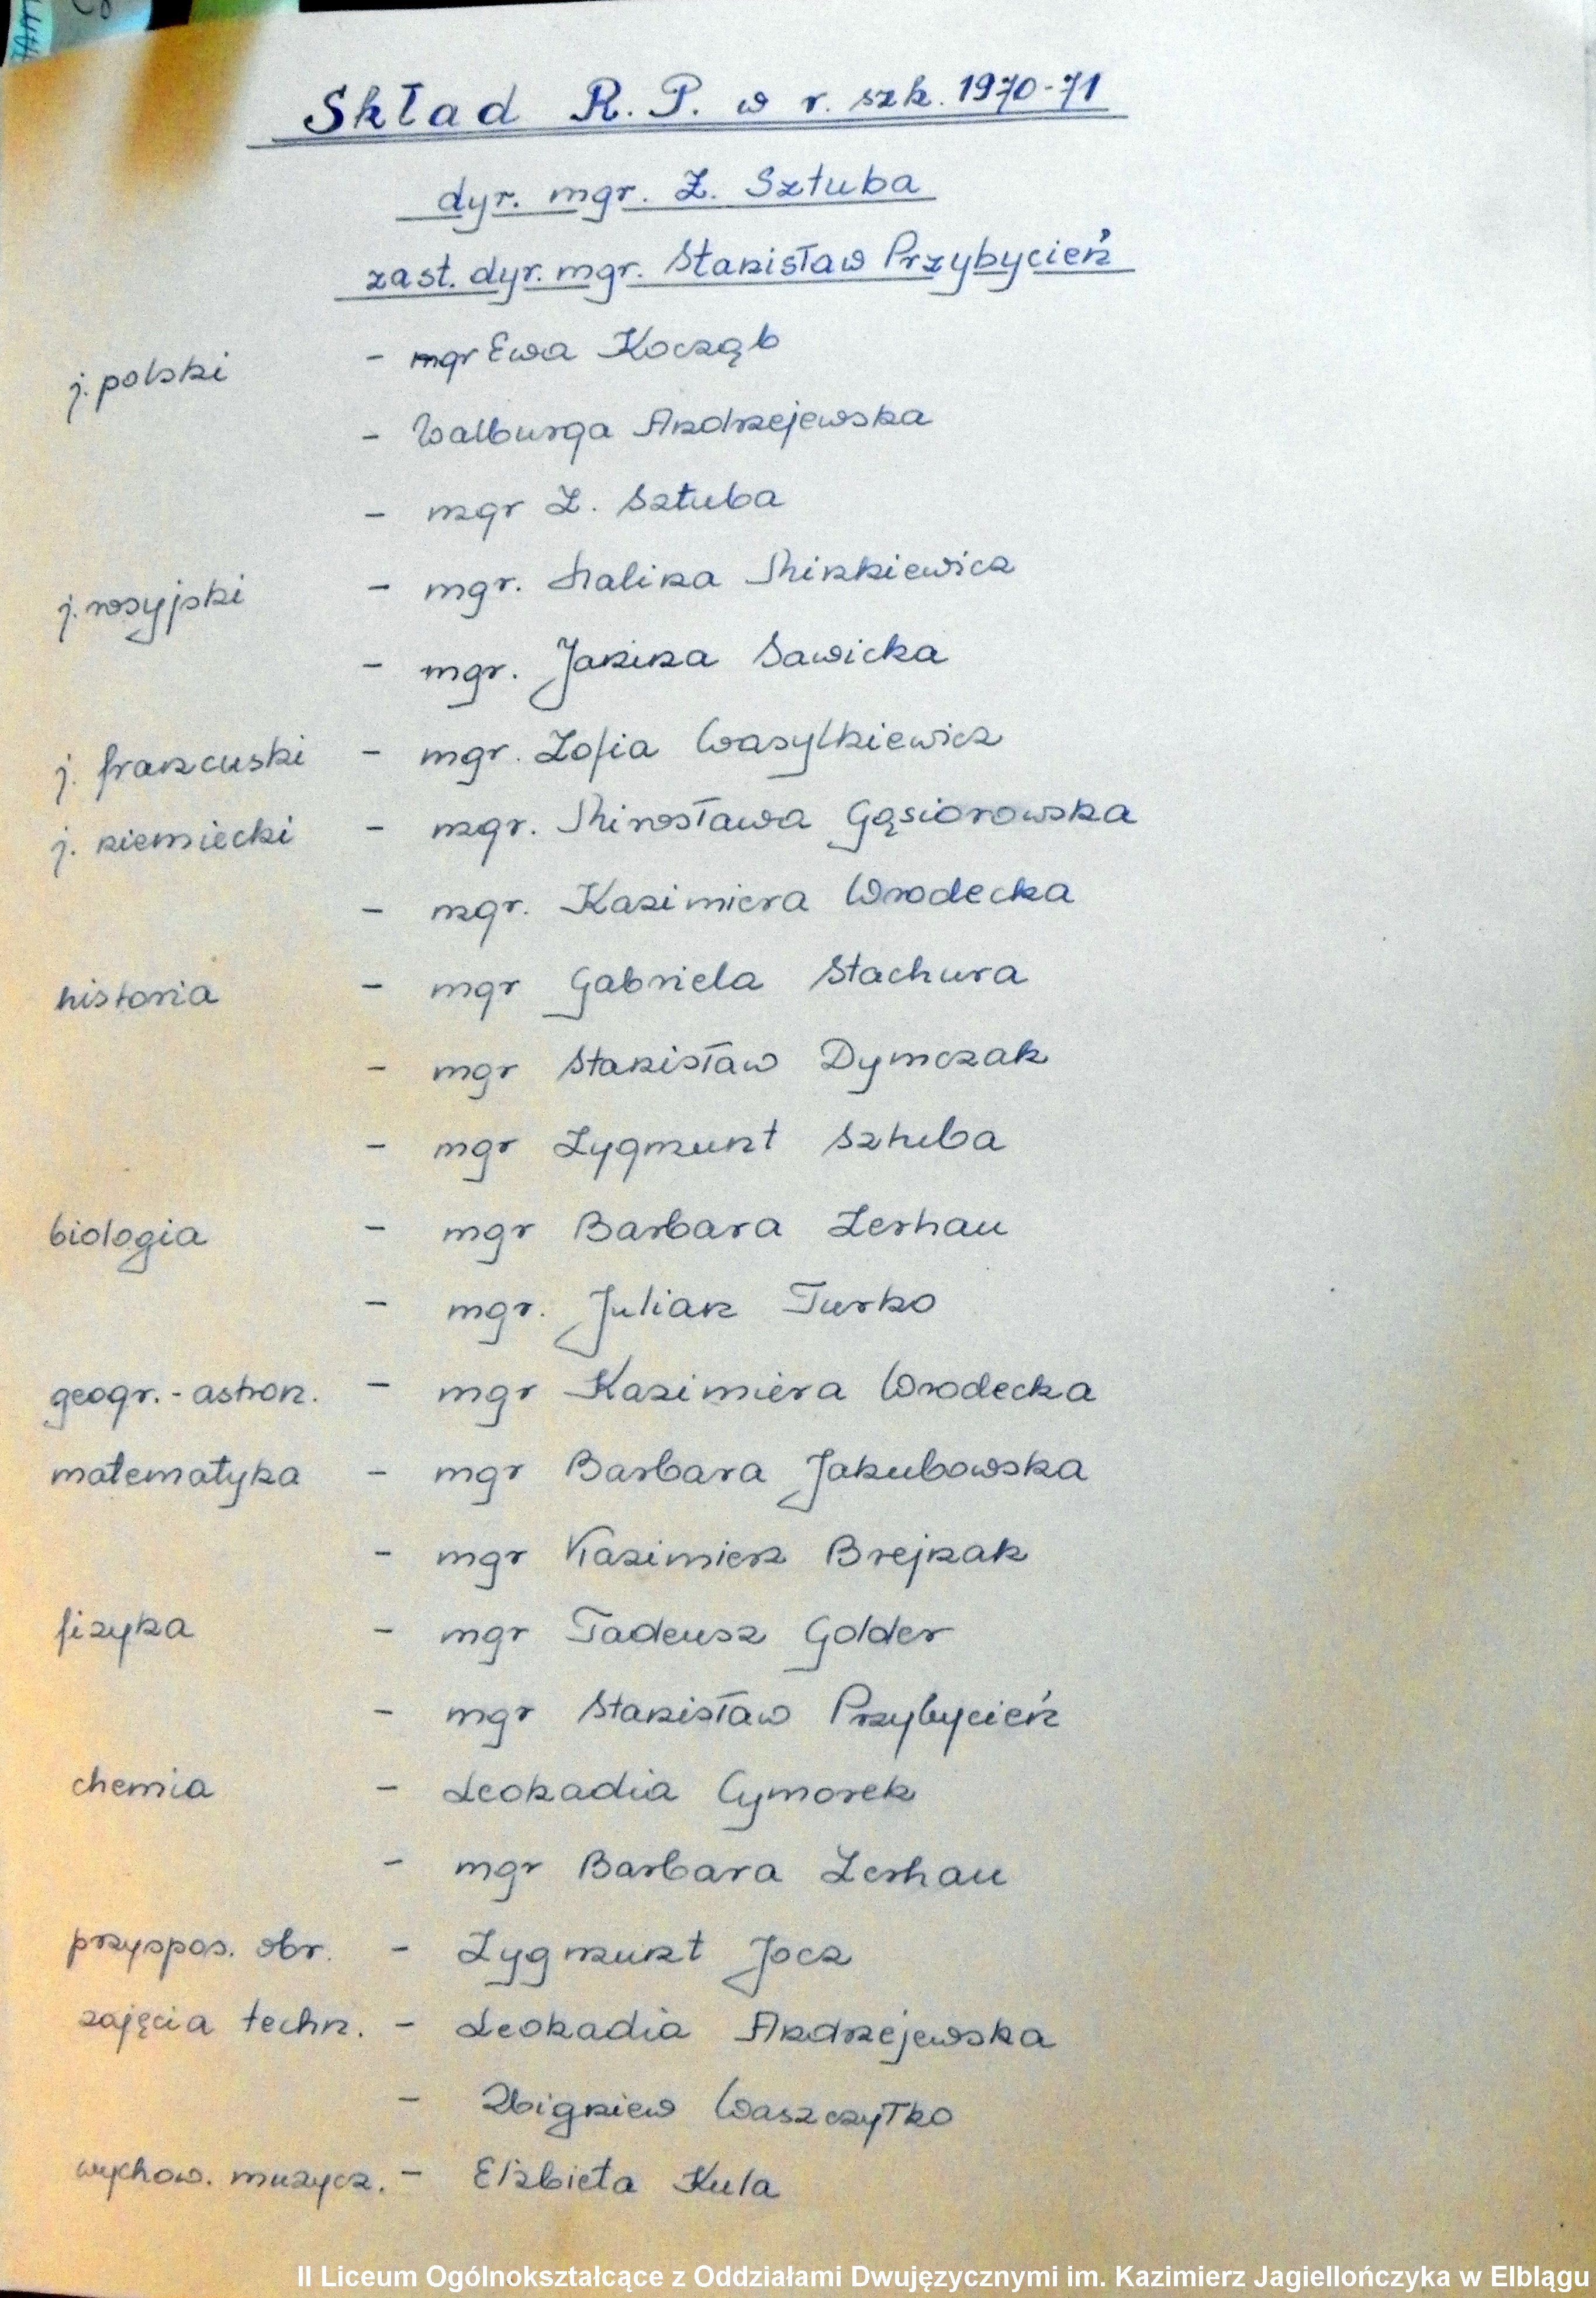 Skład R. P. w r. szk. 1970-71
dyr. mgr. Z. Sztuba
zast. dyr. mgr. Stanisław Przybycień
j. polski - mgr Ewa Kocząb
- Walburga Andrzejewska
- mgr Z. Sztuba
j. rosyjski - mgr. Halina Minkiewicz
- mgr. Janina Sawicka
j. francuski - mgr. Zofia Wasylkiewicz
j. niemiecki - mgr. Mirosława Gąsiorowska
- mgr. Kazimiera Wrodecka
historia - mgr Gabriela Stachura
- mgr Stanisław Dymczak
- mgr Zygmunt Sztuba
biologia - mgr Barbara Zerhau
- mgr. Julian Turko
geogr. - astron. - mgr Kazimiera Wrodecka
matematyka - mgr Barbara Jakubowska
- mgr Kazimierz Brejnak
fizyka - mgr Tadeusz Golder
- mgr Stanisław Przybycień
chemia - Leokadia Cymorek
- mgr Barbara Zerhau
przyspos. obr. - Zygmunt Jocz
zajęcia techn. - Leokadia Andrzejewska
- Zbigniew Waszczyłko
wychow. muzycz. - Elżbieta Kula
II Liceum Ogólnokształcące z Oddziałami Dwujęzycznymi im. Kazimierz Jagiellończyka w Elblągu